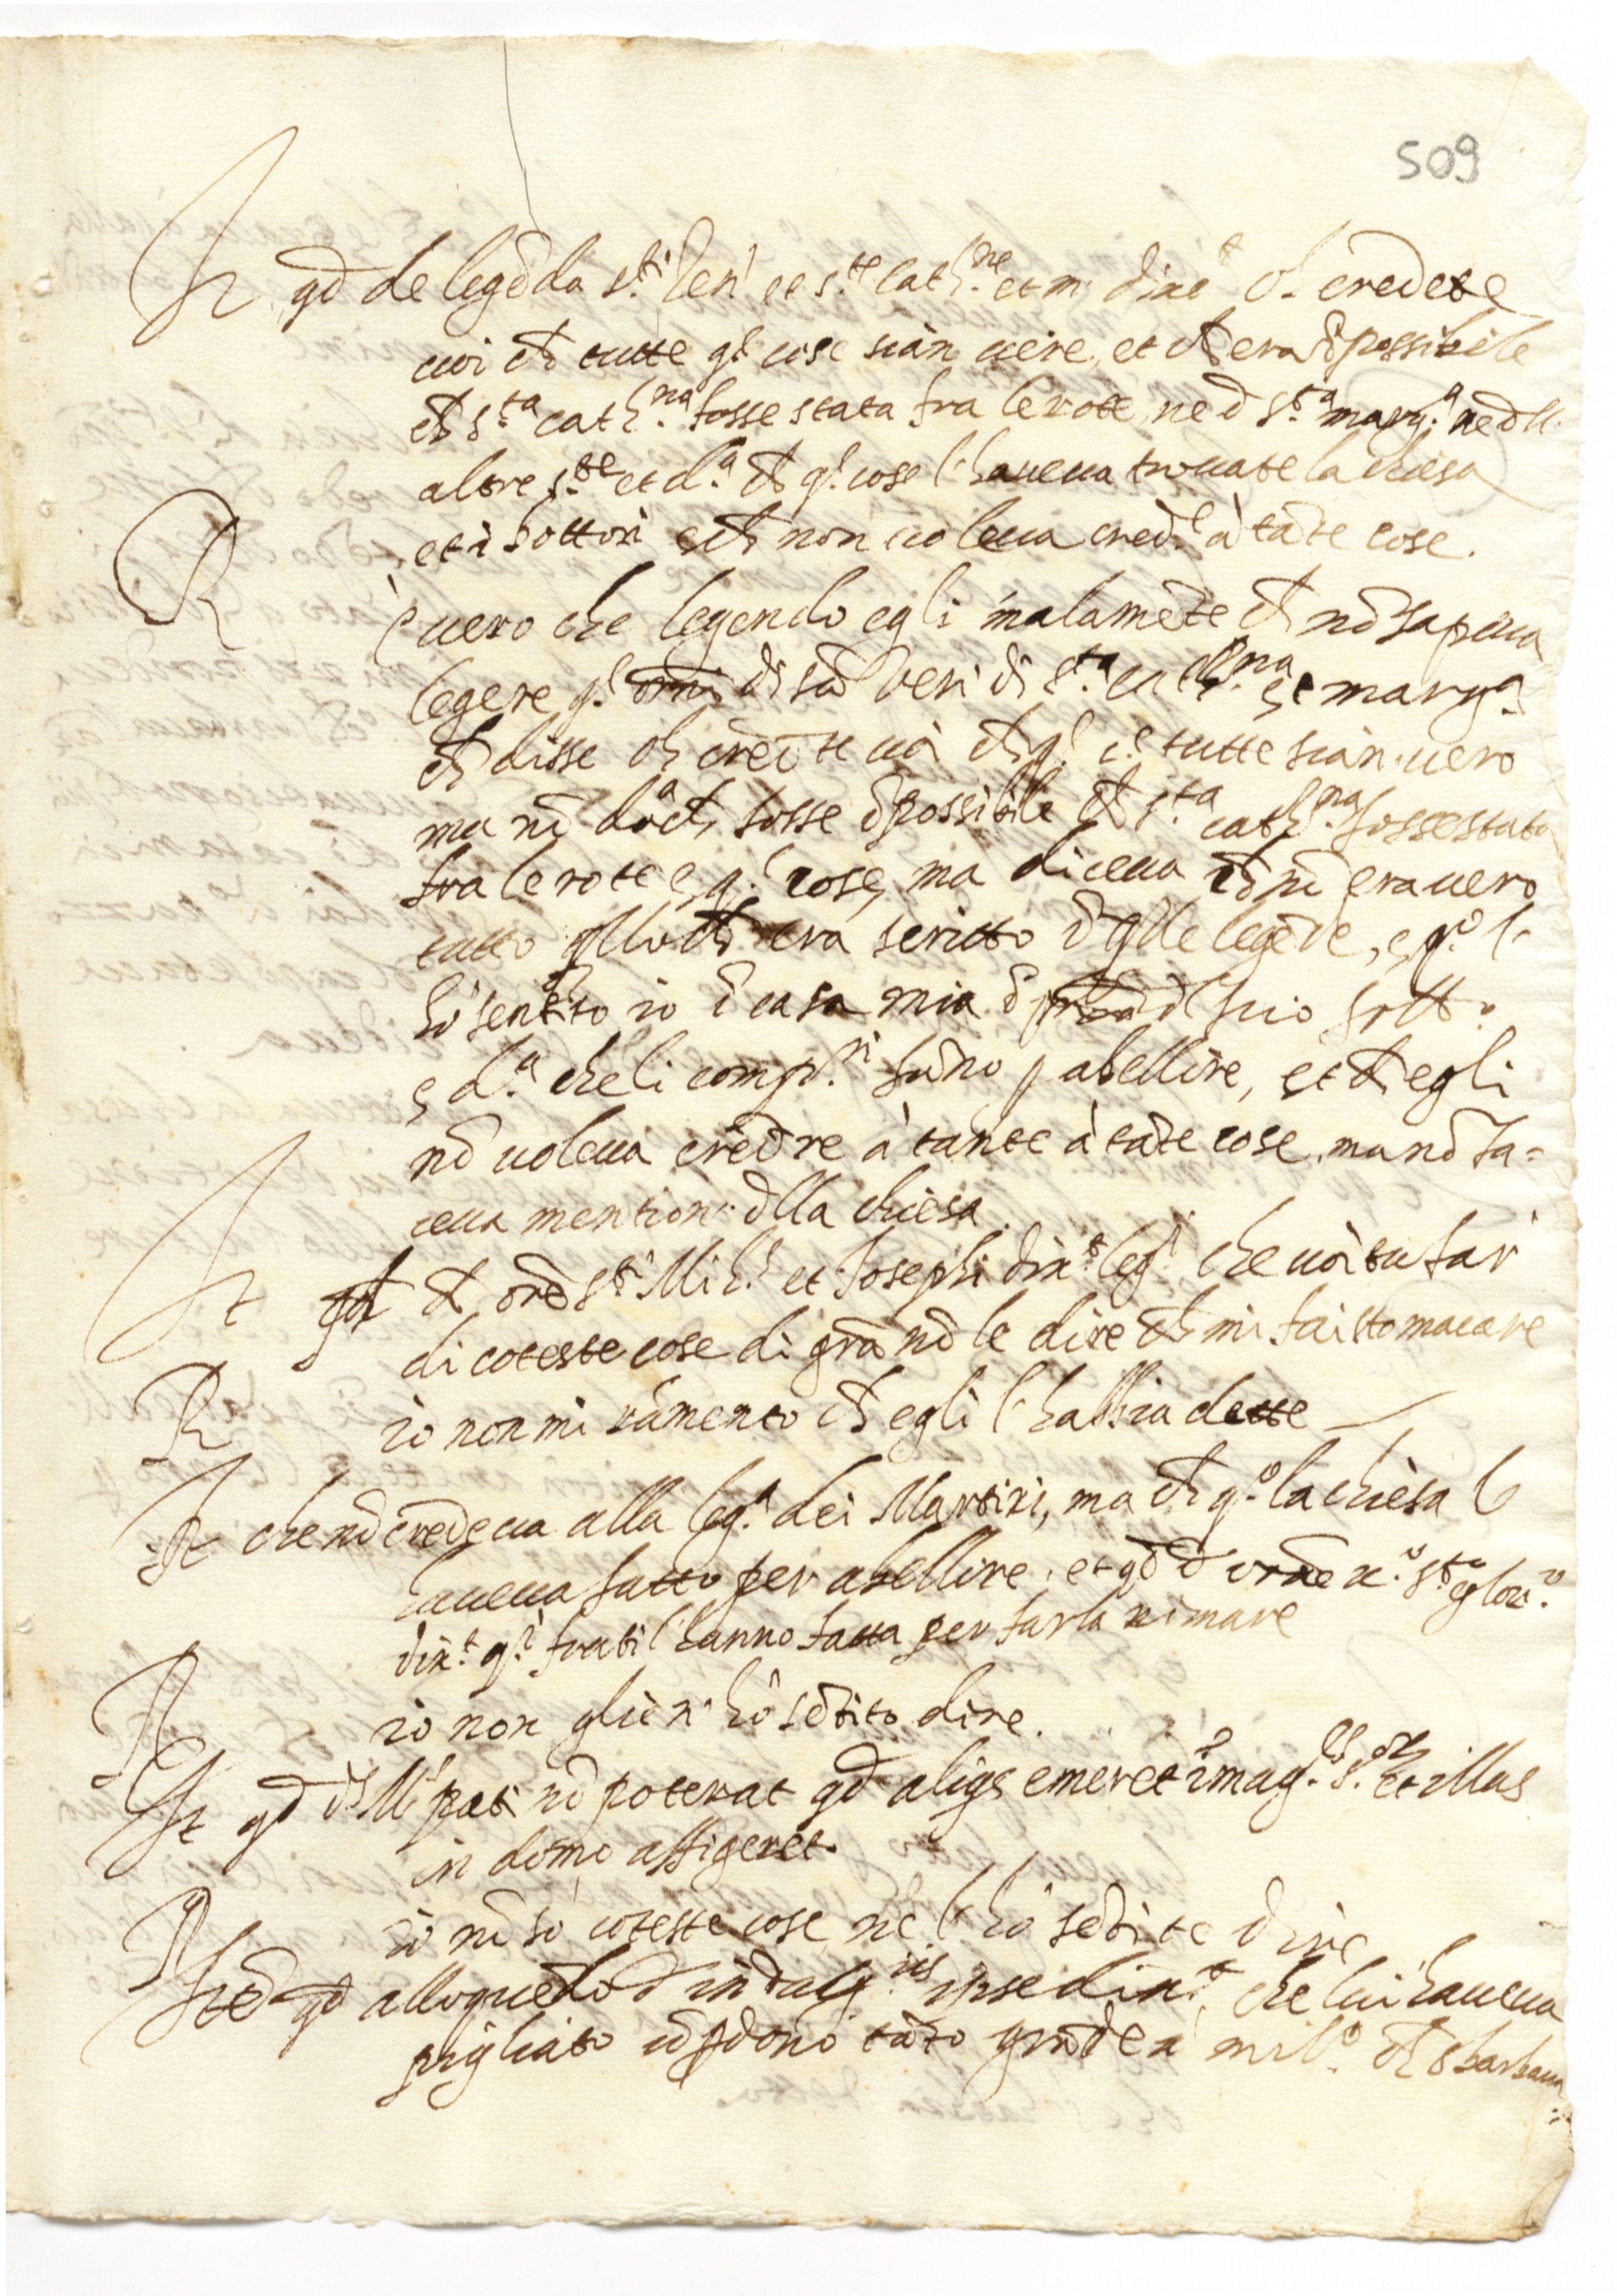 509
It qd de legēda s.ti Ieri et s.te Cath.ne et m. dixt oh credete
uoi ch tutte q.e cose sian uere, et ch era īpossibile
ch s.ta Cath.na fosse stata fra le rote ne d s.ta marg.a ne dll
altre s.te et d.a ch q.e cose l'haueua trouate la chiesa
et i dottori e ch non uoleua cred.e à tāte cose.
R è uero che legendo egli malamēte ch nō sapeua
legere q.e di sā di s.ta Cath.na et marg.a
ch disse oh credete uoi ch q.e c.e tutte sian uero
ma nō d.a ch fosse īpossibile ch s.ta Cath.na fosse stata
fra le rote e q.e cose, ma diceua ch nō era uero
tutto qllo ch era scritto ī qlle legēde, e q.o l'
hò sentito io ī casa mia ī suo sott.o
e d.a che li comp.ri fāno p abellire, et ch egli
nō uoleua credere à tante à tāte cose, ma nō fa=
ceua mention dlla chiesa.
It qd ī orōe s.ti Mich. et Josephi dix.t leg. che uoi tu far
di coteste cose di grā nō le dire ch mi fai stomacare
R io non mi ramento ch egli l'habbia dette
It che nō credeua alla leg.a dei Martiri, ma ch q.o la chiesa l'
haueua fatto per abellire, et qd ī orōe s.to glor.o
dix.t q.i frati l'hanno fatta per farla rimare
R io non gliè n'hò sētito dire.
It qd d.s M pati nō poterat qd aliqs emeret imag.es s.or et illas
in domo affigeret.
R io nō sò coteste cose nè l'hò sētite dire
Itē qd alloquēdo d indulg.iis ipse dixt, che lui haueua
pigliato ū pdono tāto grāde à ch sbarbaua
=